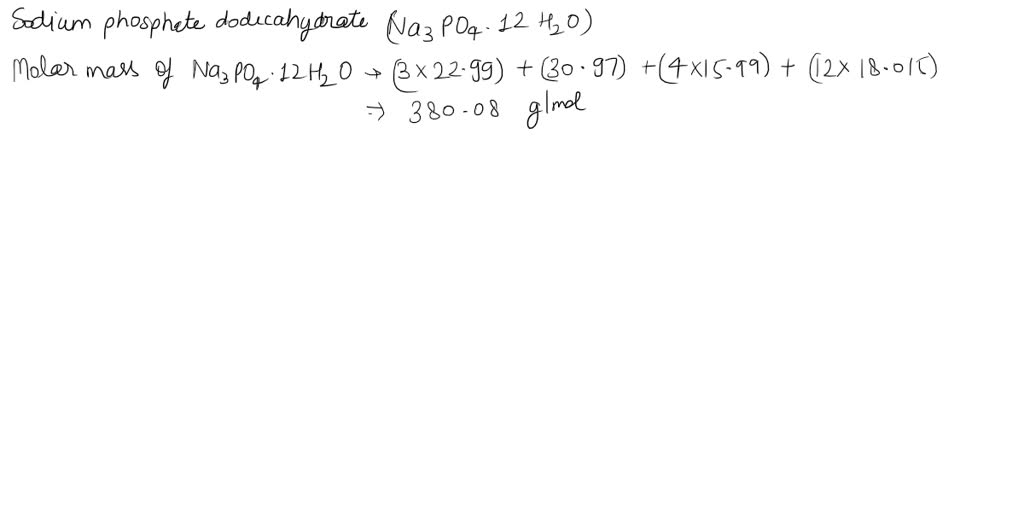 Sodium phosphete dodecahydrate (Na3PO4.12H2O)
Molar mass of Na3PO4.12H2O → (3×22.99) + (30.97) + (4×15.99) + (12×18.015)
⇒ 380.08 g/mol